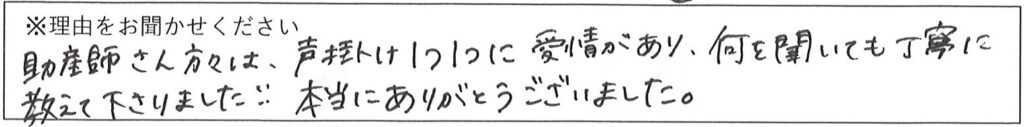 ※理由をお聞かせください
助産師さん方々は、声掛け1つ1つに愛情があり、何を聞いても丁寧に
教えて下さりました¨ 本当にありがとうございました。